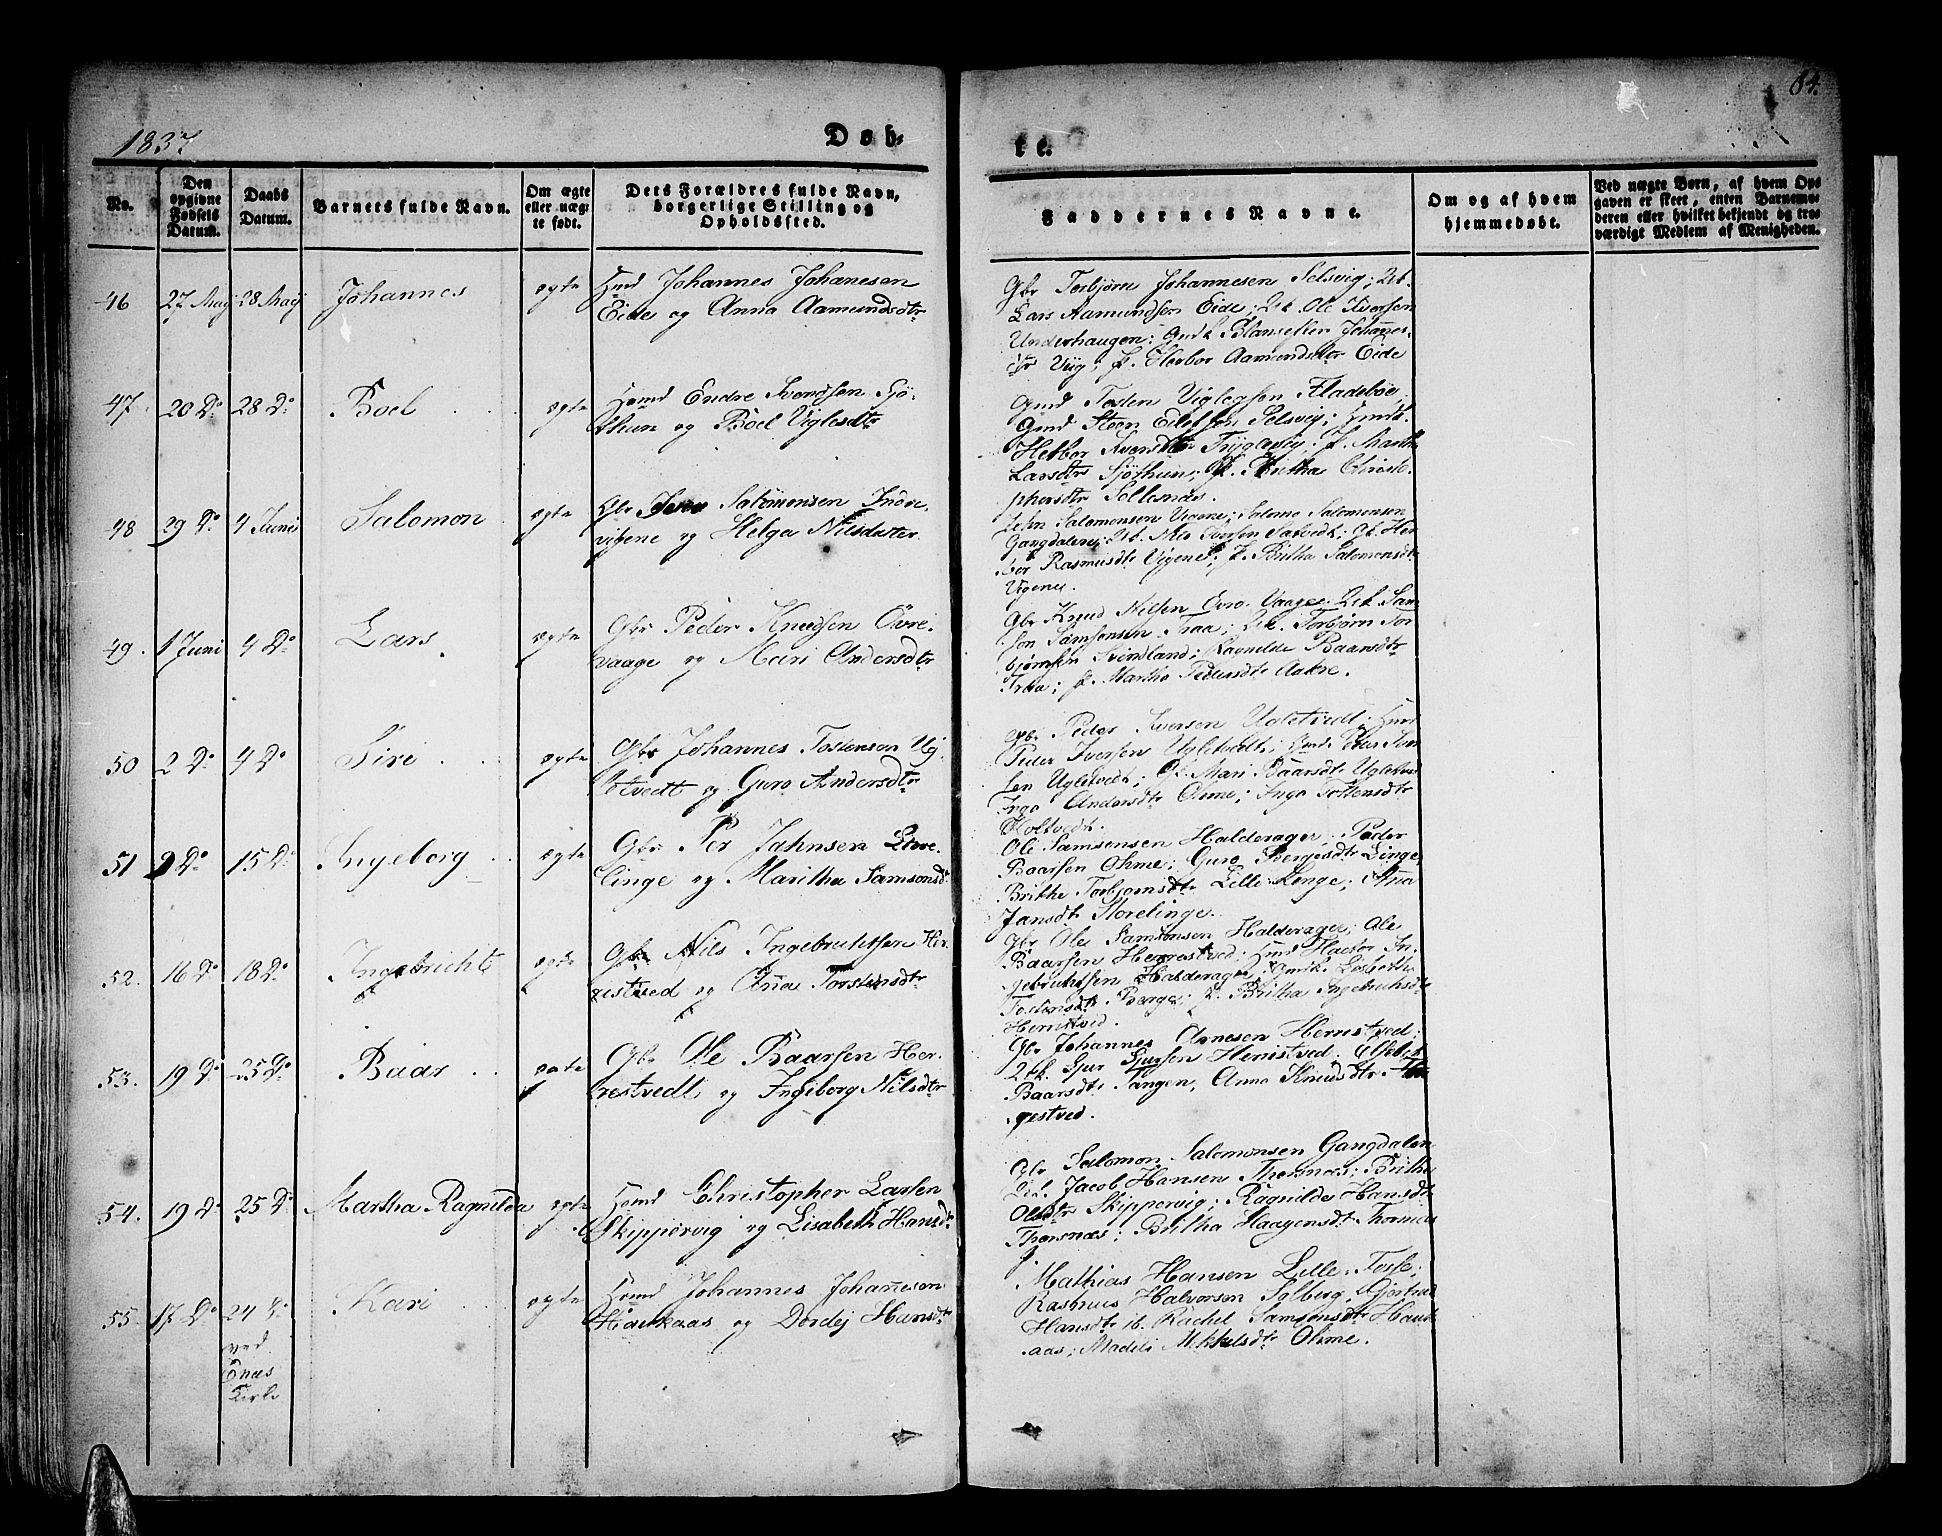 1837
Døb-
te.
64.
No.
Den opgivne Fødsels Datum.
Daabs Datum.
Barnets fulde Navn.
Om ægte eller uægte født.
Dets Forældres fulde Navn, borgerlige Stilling og Opholdssted.
Faddernes Navne.
Om og af hvem hjemmedøbt.
Ved uægte Børn, af hvem Opgaven er skeet, enten Barnemoderen eller hvilket bekjendt og troværdigt Medlem af Menigheden.
46 27 Maij 28 Maij Johannes ægte Hmd Johannes Johanesen
Eide og Anna Aamundsdtr
Gbr Torbjørn Johannesen Selsvig;
Lars Aamundsen Eide; Ole Iversen
Underhaugen; Johannes-
dtr Viig; p. Herbor Aamundsdtr Eide
47. 20 Do 28 Do Boel ægte Hmd Endre Svendsen Sjø-
thun og Boel Viglesdtr
Gmd Tosten Viglegsen Fladebøe;
Gmd Steen Selsvig;
Herbor Iversdtr p. Marth
Larsdtr Sjøthun; p. Britha Christo-
phersdtr Sollesnæs.
48 29 Do 4 Juni Salomon ægte Gbr Salomonsen Indre
vigene og Helga Nilsdatter.
John Salomonsen Vigene; Salomo Salomonsen
Gangdalen; Nils Iversen Her-
bor Rasmusdtr Vigene; p. Britha Salomonsdtr
Vigene.
49. 1 Juni 4 Do Lars ægte Gbr Peder Knudsen Øvre-
vaage og Mari Andersdtr
Gbr Knud Nilsen Øvre Vaage; Sam-
son Samsonsen Traa; Torbjørn Tor-
bjørnsen Svindland; Ragnilde Baarsdtr
Traa; p. Martha Pedersdtr Aakre.
50 2 Do 4 Do Siri ægte Gbr Johannes Tostenson Ug-
letvedt og Guro Andersdtr
Gbr Peder Iversen Ugletvedt;
Peder Iversen Ugletvedt;
sen Ugletvedt; p. Mari Baarsdtr Ugletved
Inga Andersdtr Ohme; Inga Tostensdtr
Holtvedt.
51 9 Do 15 Do Ingeborg ægte Gbr Per Jahnsen Store-
linge og Maritha Samsonsdtr
Ole Samsonsen Halderager; Peder
Baarsen Ohme; Guro Bergesdtr Linge,
Brithe Torbjørnsdtr Lille Linge; Anna
Jansdtr Storelinge.
52. 16 Do 18 Do Ingebricht ægte Gbr Nils Ingebrichtsen Her-
restved og Anna Torstensdtr
Gbr Ole Samsonsen Halderager; Ole
Baarsen Herrestved; Hmd Hactor In-
gebrichtsen Halderager; Lisbeth
Tostensdtr Berge; p. Britha Ingebrichtsdtr
Herrestved.
53. 19 Do 25 Do Baar ægte Gbr Ole Baarsen Her-
restvedt og Ingeborg Nilsdtr
Gbr Johannes Arnesen Herrestved;
Sjur Sjursen Herrestved;
Baarsdtr Tangen, Anna Knudsdtr Her-
restved.
54. 19 Do 25 Do Martha Ragnilda ægte Hmd Christopher Larsen
Skippervig og Lisabeth Hansdtr
Gbr Salomon Salomonsen Gangdalen
Jacob Hansen Thorsnæs; Brithe
Olsdtr Skippervig; Ragnilde Hansdtr
Thorsnæs; Britha Haagensdtr Thorsnæs
55. 17 Do 24 Do ved Kari ægte Hmd Johannes Johannesen
Enæs Kirke
Haukaas og Dordej Hansdtr
Mathias Hansen Lille-Torse;
Rasmus Halvorsen Solberg,
Hansdtr ib. Rachel Samsonsdtr Hauk-
aas; Madeli Mikkelsdtr Ohme.